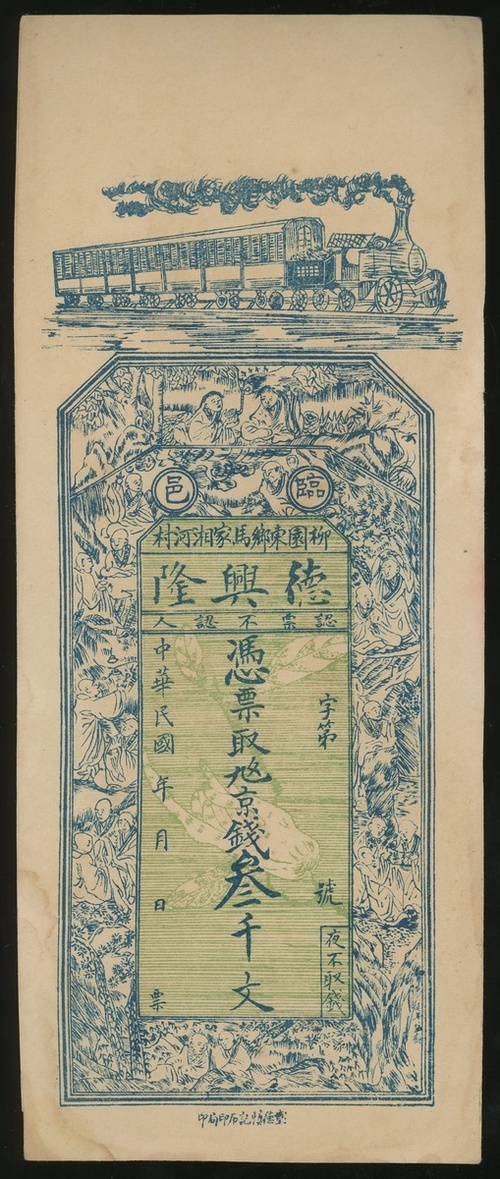 臨邑
柳園東鄉馬家湘河村
德興隆
認票不認人
字第 號
夜不取錢
憑票取京錢叁千文
中華民國 年 月 日 票
德縣記石印局印